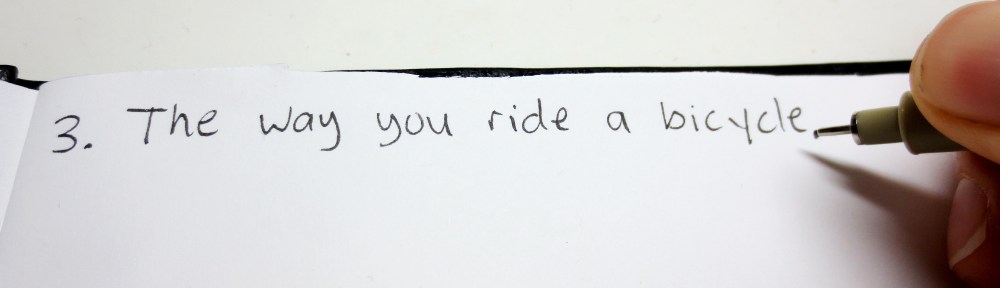 3. The way you ride a bicycle.